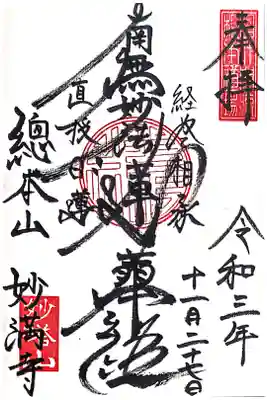 奉拝
令和三年
十一月二十七日
経巻相承
南無妙法蓮華経
直授日蓮
總本山 妙満寺
妙塔山